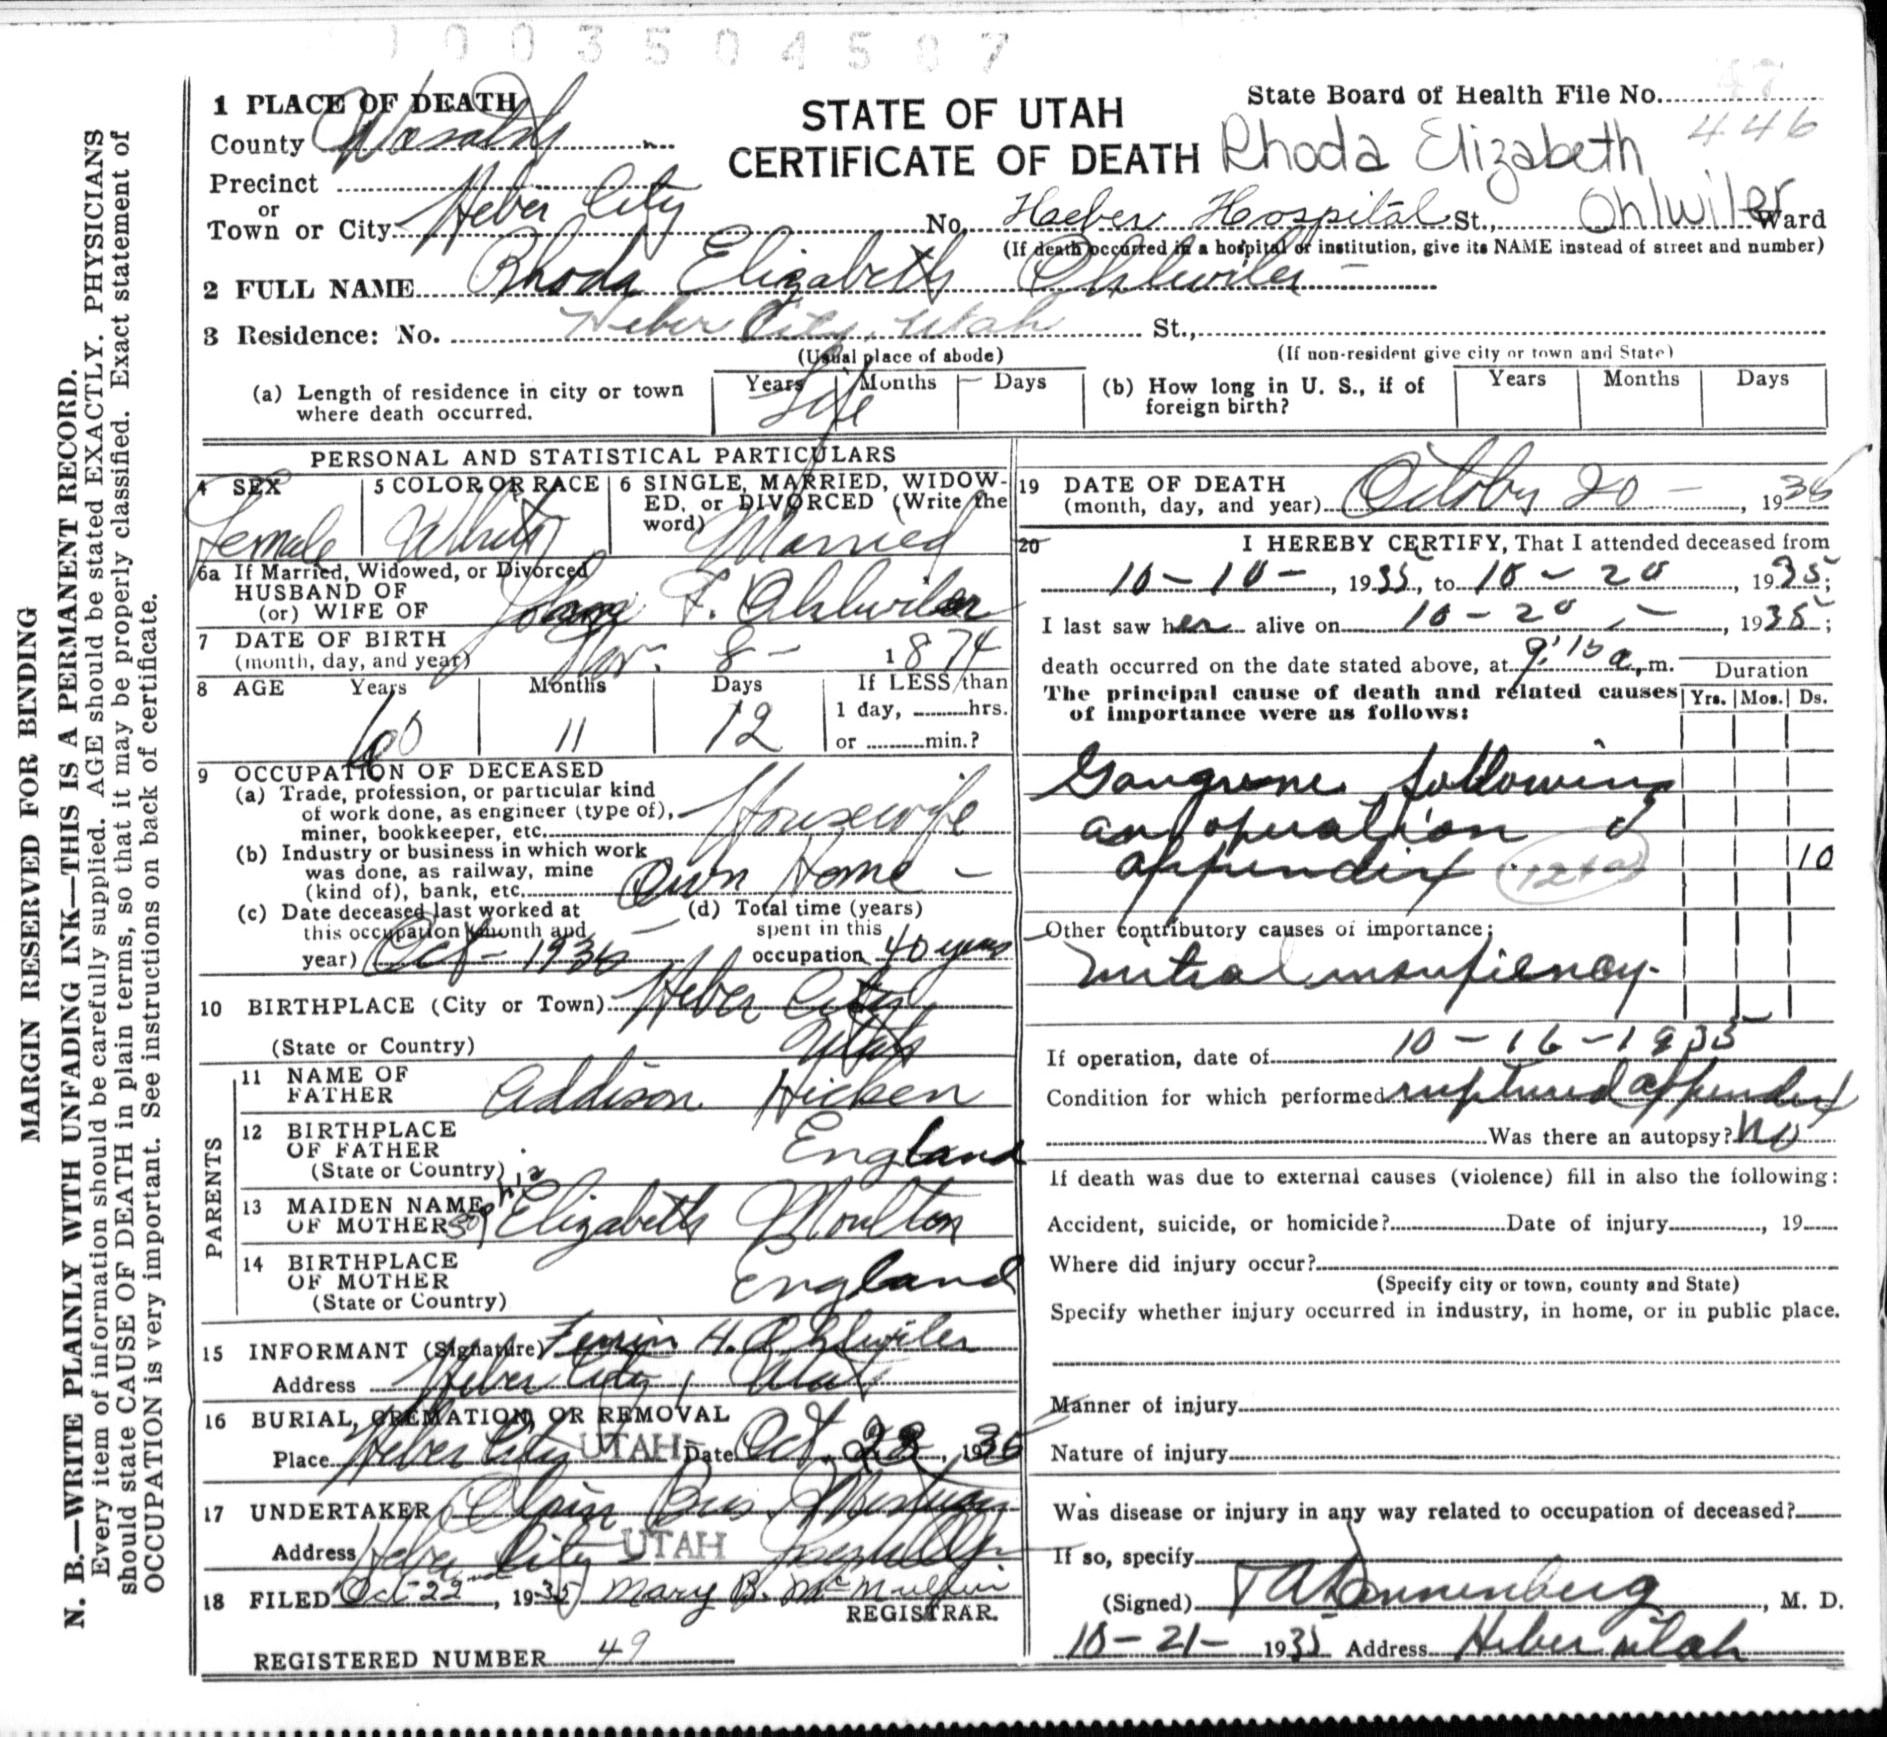 003504587
1 PLACE OF DEATH
County Wasatch
STATE OF UTAH
CERTIFICATE OF DEATH
State Board of Health File No. 47
446
Rhoda Elizabeth
Ohlwiler
Precinct
or
Town or City Heber City No. Heber Hospital St., Ward
(If death occurred in a hospital or institution, give its NAME instead of street and number)
2 FULL NAME Rhoda Elizabeth Ohlwiler
3 Residence: No. Heber City, Utah St.,
(Usual place of abode) (If non-resident give city or town and State)
(a) Length of residence in city or town where death occurred. Years Months Days
Life
(b) How long in U. S., if of foreign birth? Years Months Days
PERSONAL AND STATISTICAL PARTICULARS
4 SEX
Female
5 COLOR OR RACE
White
6 SINGLE, MARRIED, WIDOW-
ED, or DIVORCED (Write the
word)
Married
6a If Married, Widowed, or Divorced
HUSBAND OF
(or) WIFE OF F. Ohlwiler
7 DATE OF BIRTH
(month, day, and year) Nov. 8 - 1874
8 AGE Years Months Days If LESS than
1 day, hrs.
or min.?
60 11 12
9 OCCUPATION OF DECEASED
(a) Trade, profession, or particular kind
of work done, as engineer (type of),
miner, bookkeeper, etc. Housewife
(b) Industry or business in which work
was done, as railway, mine
(kind of), bank, etc. Own Home -
(c) Date deceased last worked at
this occupation (month and
year) Oct - 1935
(d) Total time (years)
spent in this
occupation 40 years
10 BIRTHPLACE (City or Town) Heber City
(State or Country) Utah
PARENTS
11 NAME OF
FATHER Addison Hicken
12 BIRTHPLACE
OF FATHER
(State or Country) England
13 MAIDEN NAME
OF MOTHER Elizabeth Moulton
14 BIRTHPLACE
OF MOTHER
(State or Country) England
15 INFORMANT (Signature) H. Ohlwiler
Address Heber City, Utah
16 BURIAL, CREMATION, OR REMOVAL
Place Heber City UTAH Date Oct. 1935
17 UNDERTAKER Olpin Bros Mortuary
Address Heber City UTAH
18 FILED Oct-22nd, 1935 Mary B. McMullin
REGISTRAR.
REGISTERED NUMBER 49
19 DATE OF DEATH
(month, day, and year) October 20 -, 1935
20 I HEREBY CERTIFY, That I attended deceased from
10-10-, 1935, to 10-20, 1935;
I last saw her alive on 10-20, 1935;
death occurred on the date stated above, at 9:15 a, m.
Duration
The principal cause of death and related causes
of importance were as follows:
Yrs. Mos. Ds.
Gangrene following
an operation of
appendix 10
Other contributory causes of importance:
mitral insufiency.
If operation, date of 10-16-1935
Condition for which performed ruptured appendix
Was there an autopsy? No
If death was due to external causes (violence) fill in also the following:
Accident, suicide, or homicide? Date of injury, 19
Where did injury occur?
(Specify city or town, county and State)
Specify whether injury occurred in industry, in home, or in public place.
Manner of injury
Nature of injury
Was disease or injury in any way related to occupation of deceased?
If so, specify
(Signed) T A Dannenberg, M. D.
10-21-1935 Address Heber Utah
MARGIN RESERVED FOR BINDING
N. B.—WRITE PLAINLY WITH UNFADING INK—THIS IS A PERMANENT RECORD.
Every item of information should be carefully supplied. AGE should be stated EXACTLY. PHYSICIANS
should state CAUSE OF DEATH in plain terms, so that it may be properly classified. Exact statement of
OCCUPATION is very important. See instructions on back of certificate.